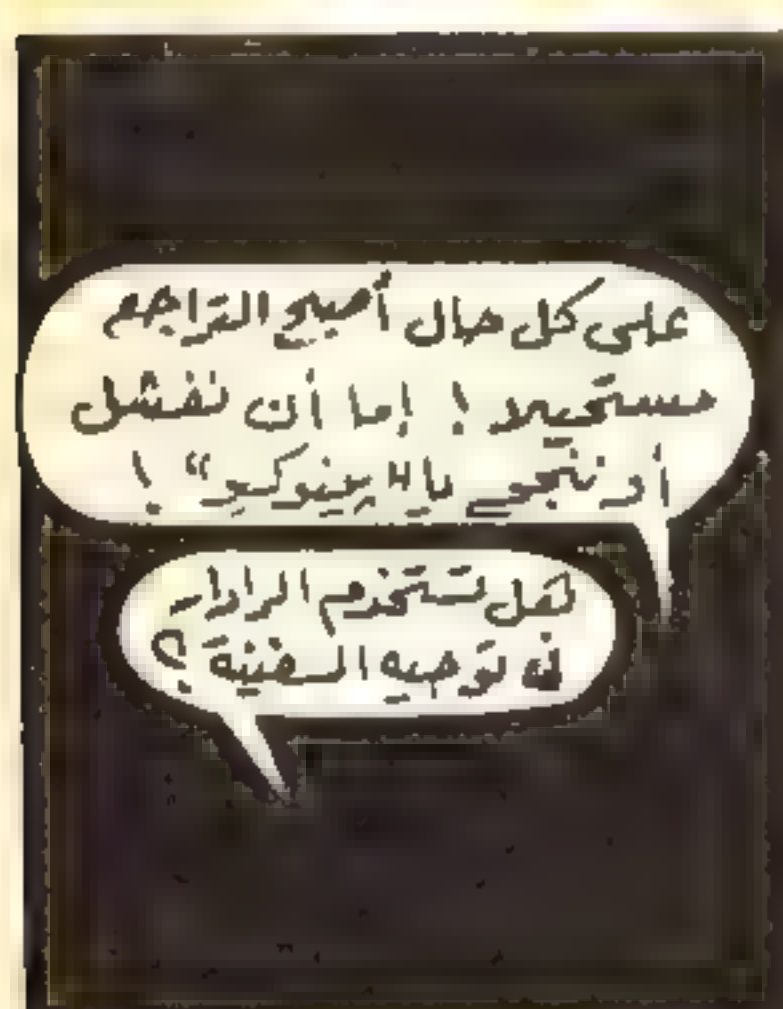 على كل حال أصبح التراجع
مستحيلا ! إما أن نفشل
أو ننجو يا " بينوكيو " !
هل تستخدم الرادار
فى توجيه السفينة ؟